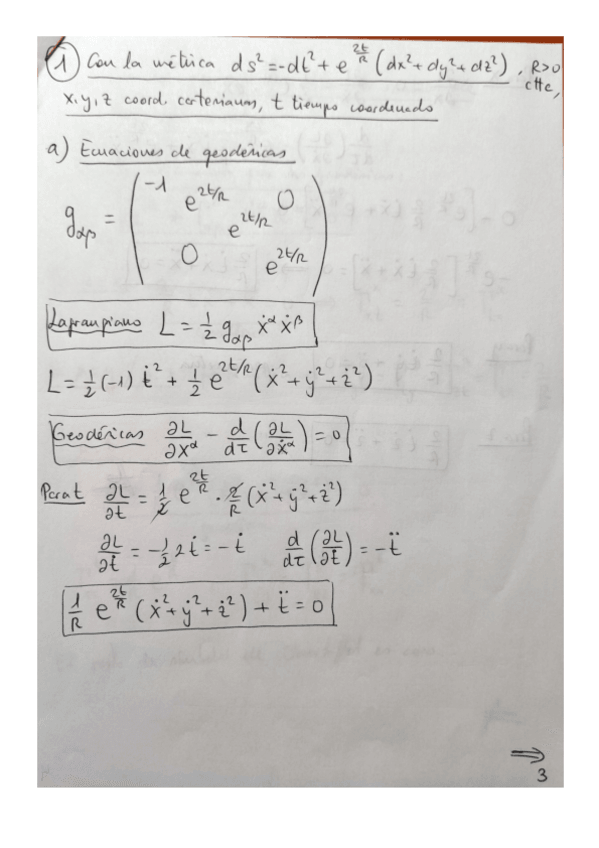 1) Con la métrica ds² = -dt² + e^{2t/R} (dx² + dy² + dz²), R>0 ctte,
x, y, z coord. cartesianas, t tiempo coordenado
a) Ecuaciones de geodésicas
g_{αβ} = ( -1 e^{2t/R} 0 e^{2t/R} 0 e^{2t/R} )
Lagrangiano L = 1/2 g_{αβ} ẋ^α ẋ^β
L = 1/2 (-1) ṫ² + 1/2 e^{2t/R} (ẋ² + ẏ² + ż²)
Geodésicas ∂L/∂x^α - d/dτ (∂L/∂ẋ^α) = 0
Para t ∂L/∂t = 1/2 e^{2t/R} · 2/R (ẋ² + ẏ² + ż²)
∂L/∂ṫ = -1/2 2ṫ = -ṫ d/dτ (∂L/∂ṫ) = -ẗ
1/R e^{2t/R} (ẋ² + ẏ² + ż²) + ẗ = 0
⇒
3